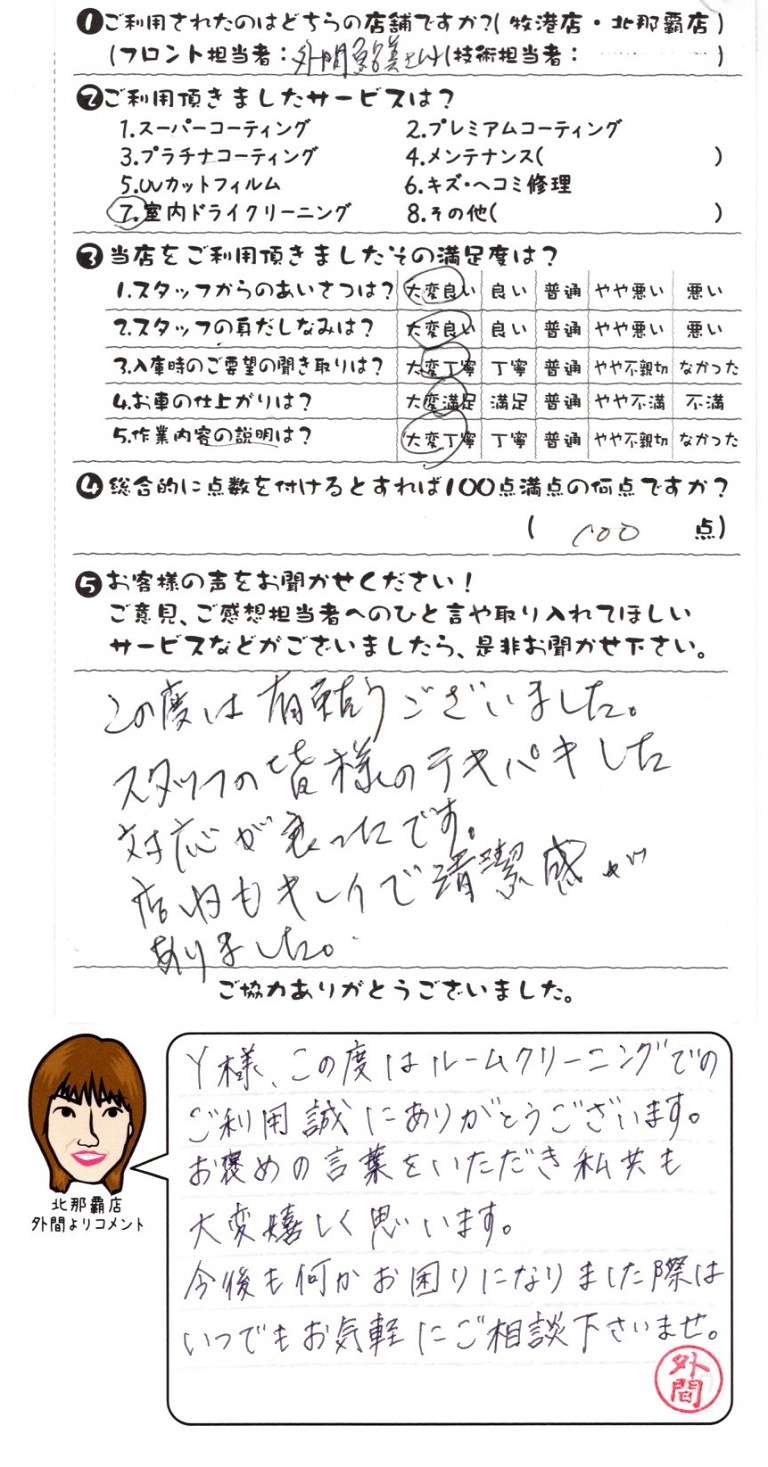 ❶ご利用されたのはどちらの店舗ですか?(牧港店・北那覇店)
(フロント担当者:外間 美さん(技術担当者: )
❷ご利用頂きましたサービスは?
1.スーパーコーティング 2.プレミアムコーティング
3.プラチナコーティング 4.メンテナンス( )
5.UVカットフィルム 6.キズ・ヘコミ修理
7.室内ドライクリーニング 8.その他( )
❸当店をご利用頂きましたその満足度は?
1.スタッフからのあいさつは? 大変良い 良い 普通 やや悪い 悪い
2.スタッフの身だしなみは? 大変良い 良い 普通 やや悪い 悪い
3.入庫時のご要望の聞き取りは? 大変丁寧 丁寧 普通 やや不親切 なかった
4.お車の仕上がりは? 大変満足 満足 普通 やや不満 不満
5.作業内容の説明は? 大変丁寧 丁寧 普通 やや不親切 なかった
❹総合的に点数を付けるとすれば100点満点の何点ですか?
( 100 点)
❺お客様の声をお聞かせください!
ご意見、ご感想担当者へのひと言や取り入れてほしい
サービスなどがございましたら、是非お聞かせ下さい。
この度は有難うございました。
スタッフの皆様のテキパキした
対応が良かったです。
店内もキレイで清潔感が
ありました。
ご協力ありがとうございました。
Y様、この度はルームクリーニングでの
ご利用誠にありがとうございます。
お褒めの言葉をいただき私共も
大変嬉しく思います。
今後も何かお困りになりました際は
いつでもお気軽にご相談下さいませ。
北那覇店
外間よりコメント
外間